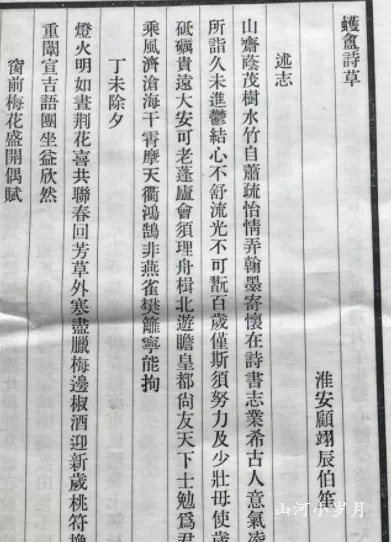 蠖盦詩草
淮安顧翊辰伯笙
述志
山齋蔭茂樹水竹自蕭疏怡情弄翰墨寄懷在詩書志業希古人意氣凌
所詣久未進鬱結心不舒流光不可翫百歲僅斯須努力及少壯毋使歲
砥礪貴遠大安可老蓬廬會須理舟楫北遊瞻皇都尙友天下士勉爲君
乘風濟滄海干霄摩天衢鴻鵠非燕雀樊籬寧能拘
丁未除夕
燈火明如晝荆花喜共聯春回芳草外寒盡臘梅邊椒酒迎新歲桃符換
重闈宣吉語團坐益欣然
窗前梅花盛開偶賦
山河小岁月